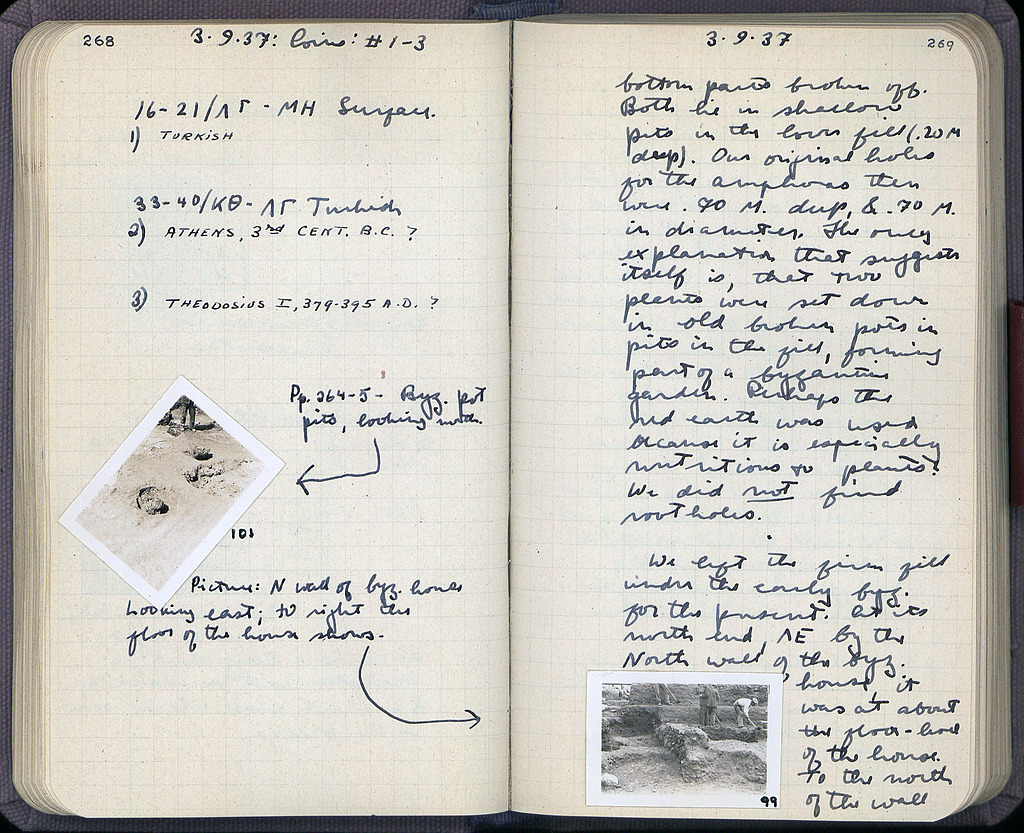 268
3·9·37: Coins: #1-3
16-21/ΛΓ - MH Surface.
1) TURKISH
33-40/ΚΘ - ΛΓ Turkish
2) ATHENS, 3rd CENT. B.C. ?
3) THEODOSIUS I, 379-395 A.D. ?
Pp. 264-5 - Byz. pot
pits, looking north.
101
Picture: N wall of byz. house
Looking east; to right the
floor of the house shows.
3·9·37
269
bottom parts broken off.
Both lie in shallow
pits in the lower fill (.20 M
deep). Our original holes
for the amphoras then
were .90 M. deep, & .70 M.
in diameter. The only
explanation that suggests
itself is, that two
plants were set down
in old broken pots in
pits in the fill, forming
part of a byzantine
garden. Perhaps the
red earth was used
because it is especially
nutritious to plants?
We did not find
root holes.
We left the firm fill
under the early byz.
for the present. At its
north end, ΛΕ by the
North wall of the byz.
house, it
was at about
the floor-level
of the house.
To the north
of the wall
99